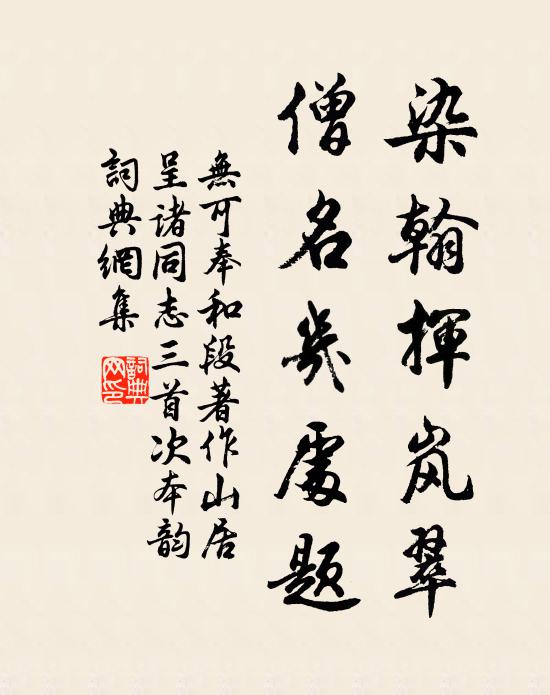 染翰揮岚翠
僧名幾處題
無可奉和段著作山居
呈诸同志三首次本韵
詞典網集
詞典网印